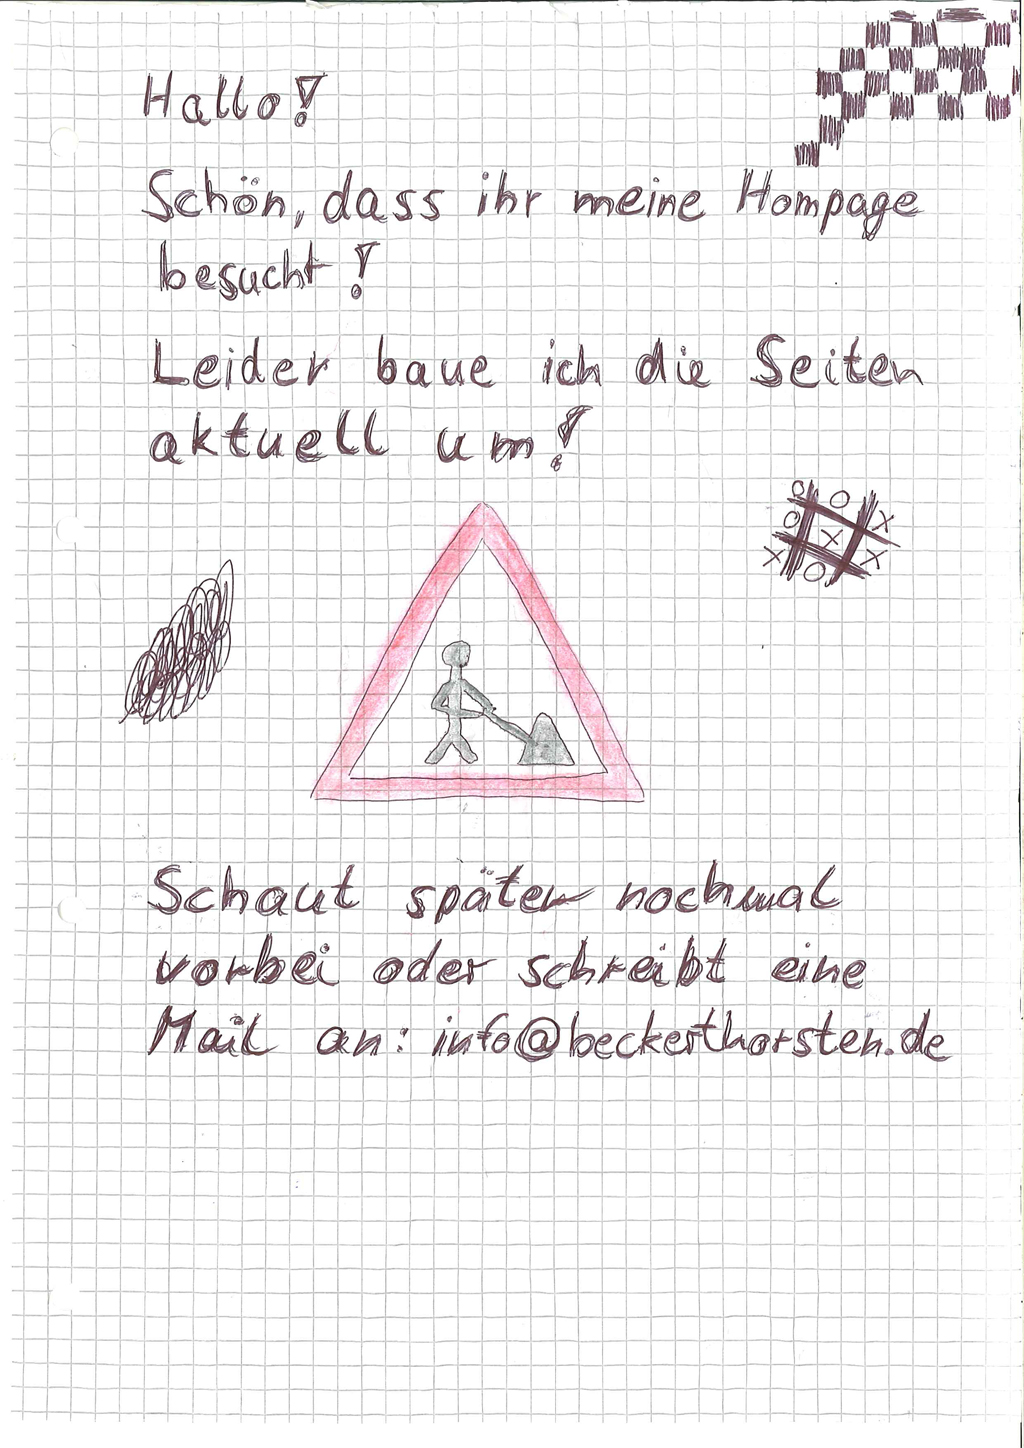 Hallo!
Schön, dass ihr meine Hompage
besucht!
Leider baue ich die Seiten
aktuell um!
O O X
O X X
X O
Schaut später nochmal
vorbei oder schreibt eine
Mail an: info@beckerthorsten.de